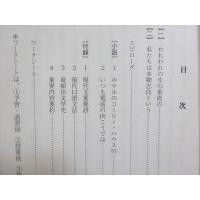 目次
【一】われわれの生の垂直の
【二】私たちは本物志向という
エピローグ
【小説】
1 ホテルのコーヒー・ハウスの
2 いつも電話の向こうでは
【付録】
1 現代文重要語
2 現代口語文法
3 最頻出文学史
4 重要内容要約
ワークシート
※ワークシートは、①予習・演習後、②授業後、③